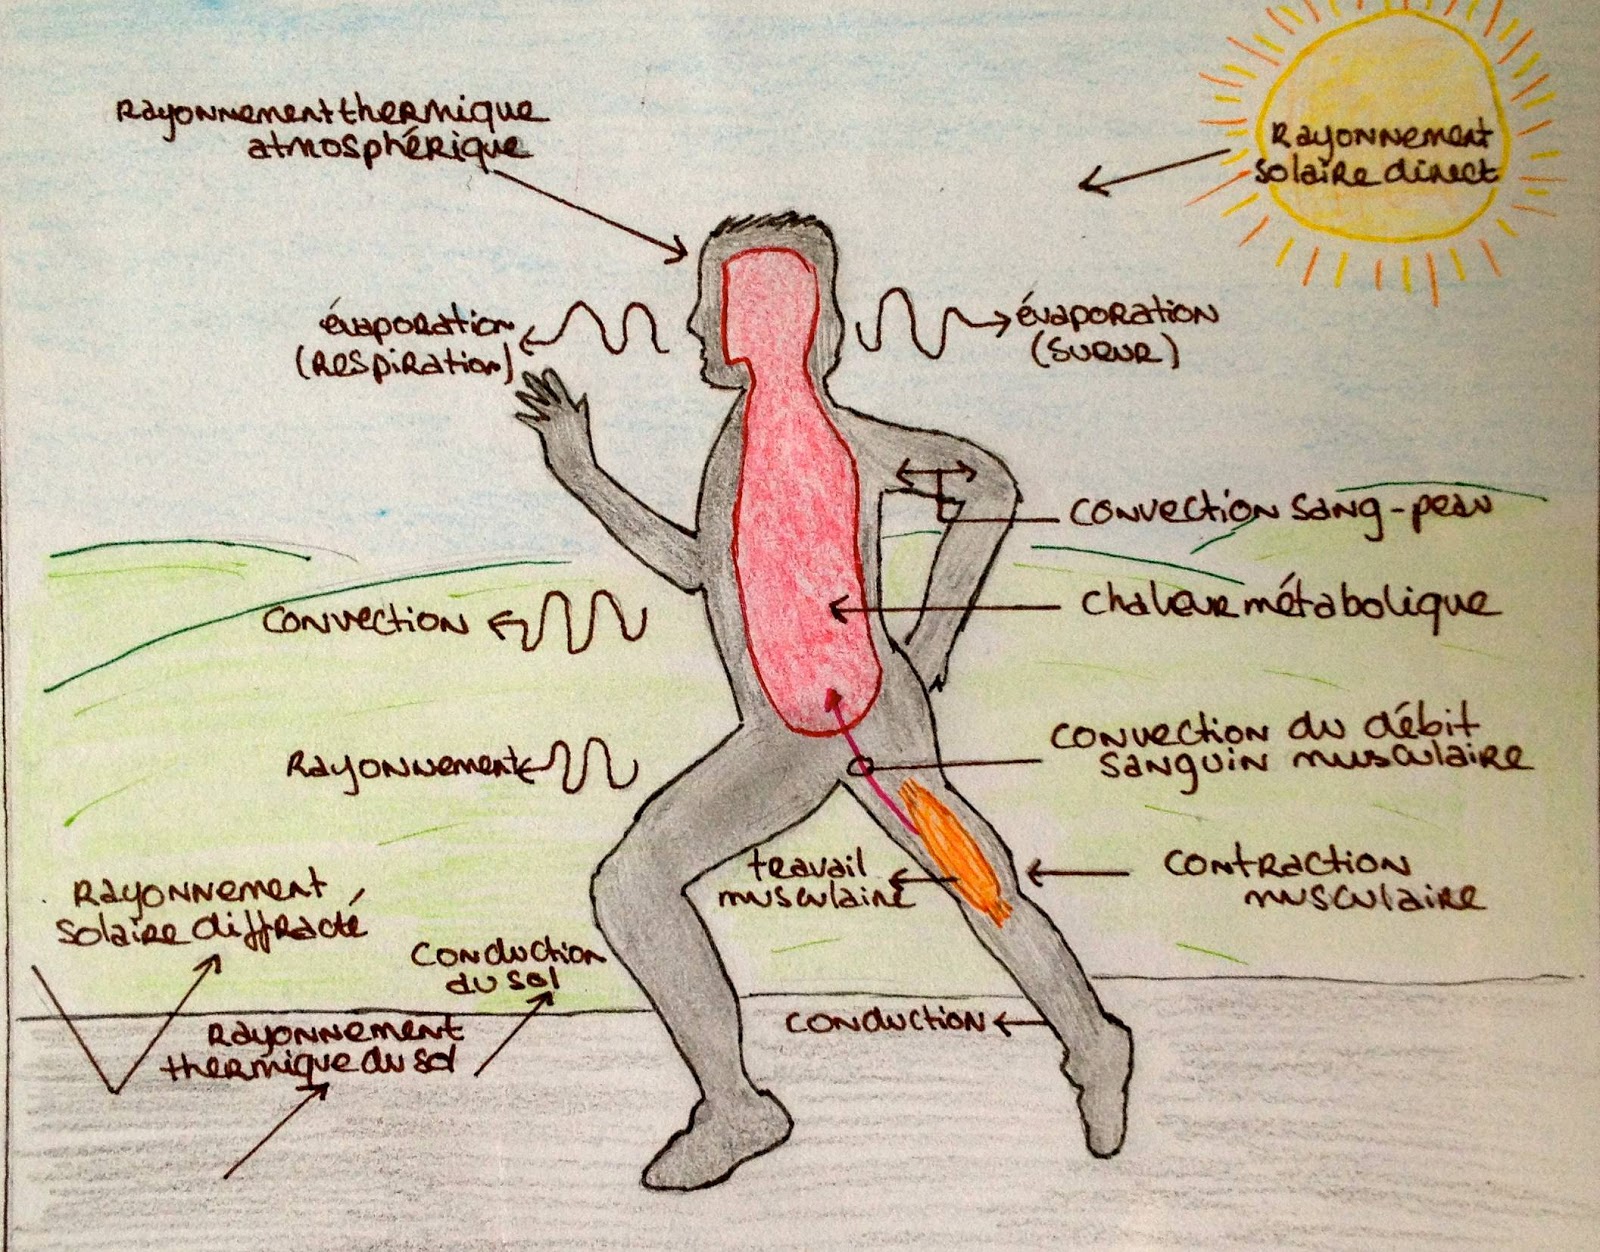 Rayonnement thermique
atmosphérique
Rayonnement
solaire direct
évaporation
(respiration)
évaporation
(sueur)
convection sang-peau
chaleur métabolique
convection
convection du débit
sanguin musculaire
Rayonnement
travail
musculaire
contraction
musculaire
Rayonnement
solaire diffracté
conduction
du sol
Rayonnement
thermique du sol
conduction